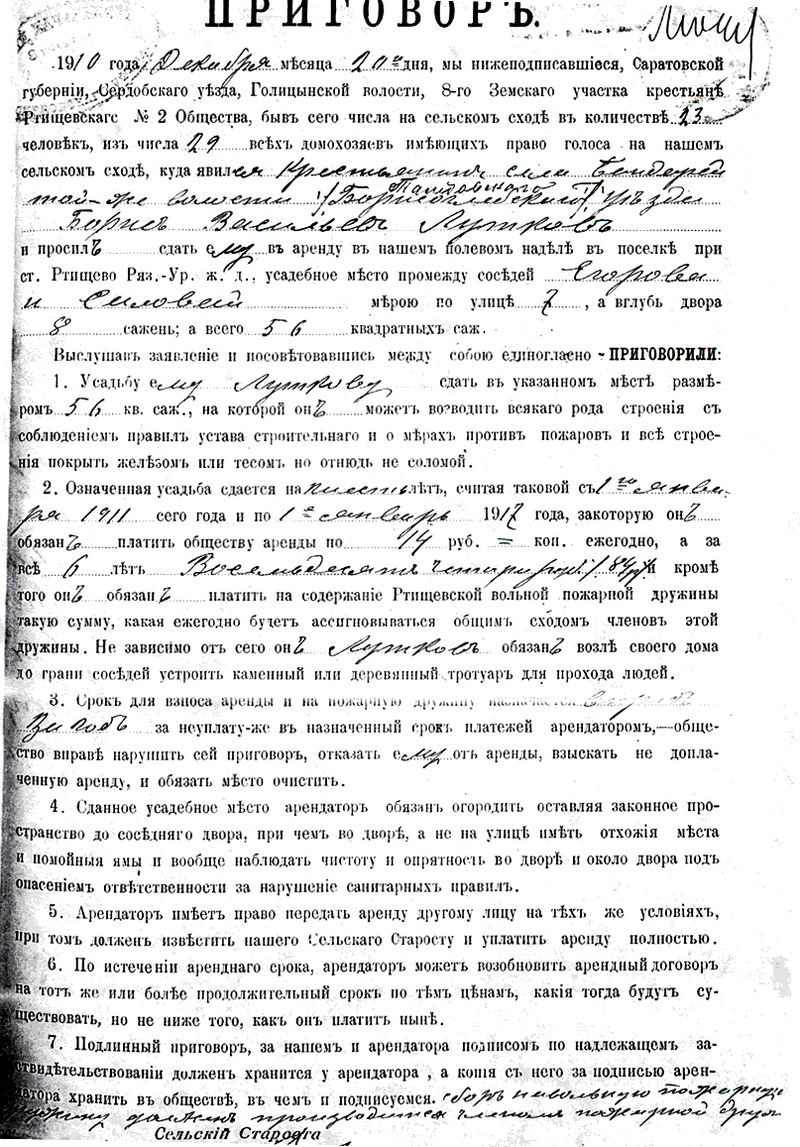 ПРИГОВОРЪ.
1910 года, Декабря мѣсяца 20го дня, мы нижеподписавшіеся, Саратовской
губерніи, Сердобскаго уѣзда, Голицынской волости, 8-го Земскаго участка крестьяне
Ртищевскаго № 2 Общества, бывъ сего числа на сельскомъ сходѣ въ количествѣ 23
человѣкъ, изъ числа 29 всѣхъ домохозяевъ имѣющихъ право голоса на нашемъ
сельскомъ сходѣ, куда явился Крестьянинъ села
той-же волости Борисоглебскаго уѣзда
Борис Васильевъ Лутковъ
и просилъ сдать ему въ аренду въ нашемъ полевомъ надѣлѣ въ поселкѣ при
ст. Ртищево Ряз.-Ур. ж. д., усадебное мѣсто промежду сосѣдей Егорова
и мѣрою по улицѣ 7, а вглубь двора
8 сажень; а всего 56 квадратныхъ саж.
Выслушавъ заявленіе и посовѣтовавшись между собою единогласно - ПРИГОВОРИЛИ:
1. Усадьбу ему Луткову сдать въ указанномъ мѣстѣ размѣ-
ромъ 56 кв. саж., на которой онъ можетъ возводить всякаго рода строенія съ
соблюденіемъ правилъ устава строительнаго и о мѣрахъ противъ пожаровъ и всѣ строе-
нія покрыть желѣзомъ или тесомъ но отнюдь не соломой.
2. Означенная усадьба сдается на шесть лѣтъ, считая таковой съ 1го Янва-
ря 1911 сего года и по 1е Январь 1917 года, за которую онъ
обязанъ платить обществу аренды по 14 руб. = коп. ежегодно, а за
всѣ 6 лѣтъ Восемьдесятъ четыри руб. /84 р/ кромѣ
того онъ обязанъ платить на содержаніе Ртищевской вольной пожарной дружины
такую сумму, какая ежегодно будетъ ассигновываться общимъ сходомъ членовъ этой
дружины. Не зависимо отъ сего онъ Лутковъ обязанъ возлѣ своего дома
до грани сосѣдей устроить каменный или деревянный тротуаръ для прохода людей.
3. Срокъ для взноса аренды и на пожарную дружину назначается
за неуплату-же въ назначенный срокъ платежей арендаторомъ,—обще-
ство вправѣ нарушить сей приговоръ, отказать ему отъ аренды, взыскать не допла-
ченную аренду, и обязать мѣсто очистить.
4. Сданное усадебное мѣсто арендаторъ обязанъ огородить оставляя законное про-
странство до сосѣдняго двора, при чемъ во дворѣ, а не на улицѣ имѣть отхожія мѣста
и помойныя ямы и вообще наблюдать чистоту и опрятность во дворѣ и около двора подъ
опасеніемъ отвѣтственности за нарушеніе санитарныхъ правилъ.
5. Арендаторъ имѣетъ право передать аренду другому лицу на тѣхъ же условіяхъ,
при томъ долженъ извѣстить нашего Сельскаго Старосту и уплатить аренду полностью.
6. По истеченіи аренднаго срока, арендаторъ можетъ возобновить арендный договоръ
на тотъ же или болѣе продолжительный срокъ по тѣмъ цѣнамъ, какія тогда будутъ су-
ществовать, но не ниже того, какъ онъ платитъ нынѣ.
7. Подлинный приговоръ, за нашемъ и арендатора подписомъ по надлежащемъ за-
свидѣтельствованіи долженъ хранится у арендатора, а копія съ него за подписью арен-
датора хранить въ обществѣ, въ чемъ и подписуемся. сборъ на вольную пожарную
дружину долженъ производится членомъ пожарной
Сельскій Староста